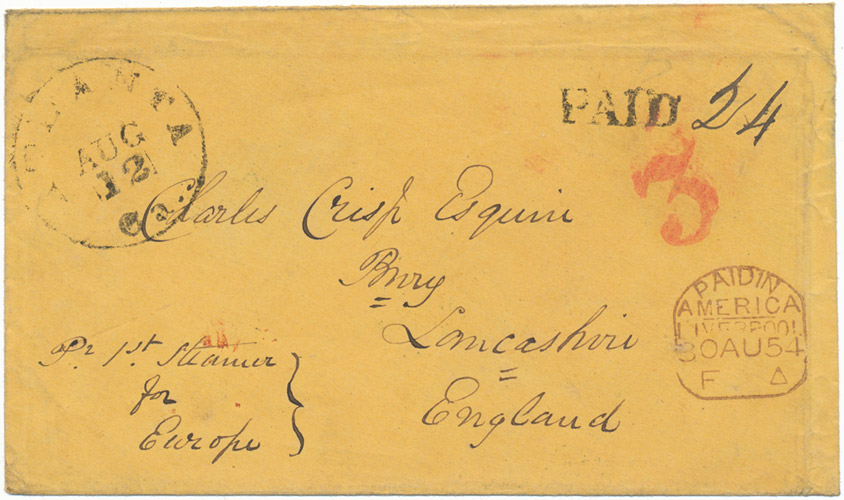 ATLANTA
Ga.
AUG
12
PAID 24
3
Charles Crisp Esquire
Bury
Lancashire
England
Pr 1st. Steamer
for
Europe
PAID IN
AMERICA
LIVERPOOL
30AU54
F Δ